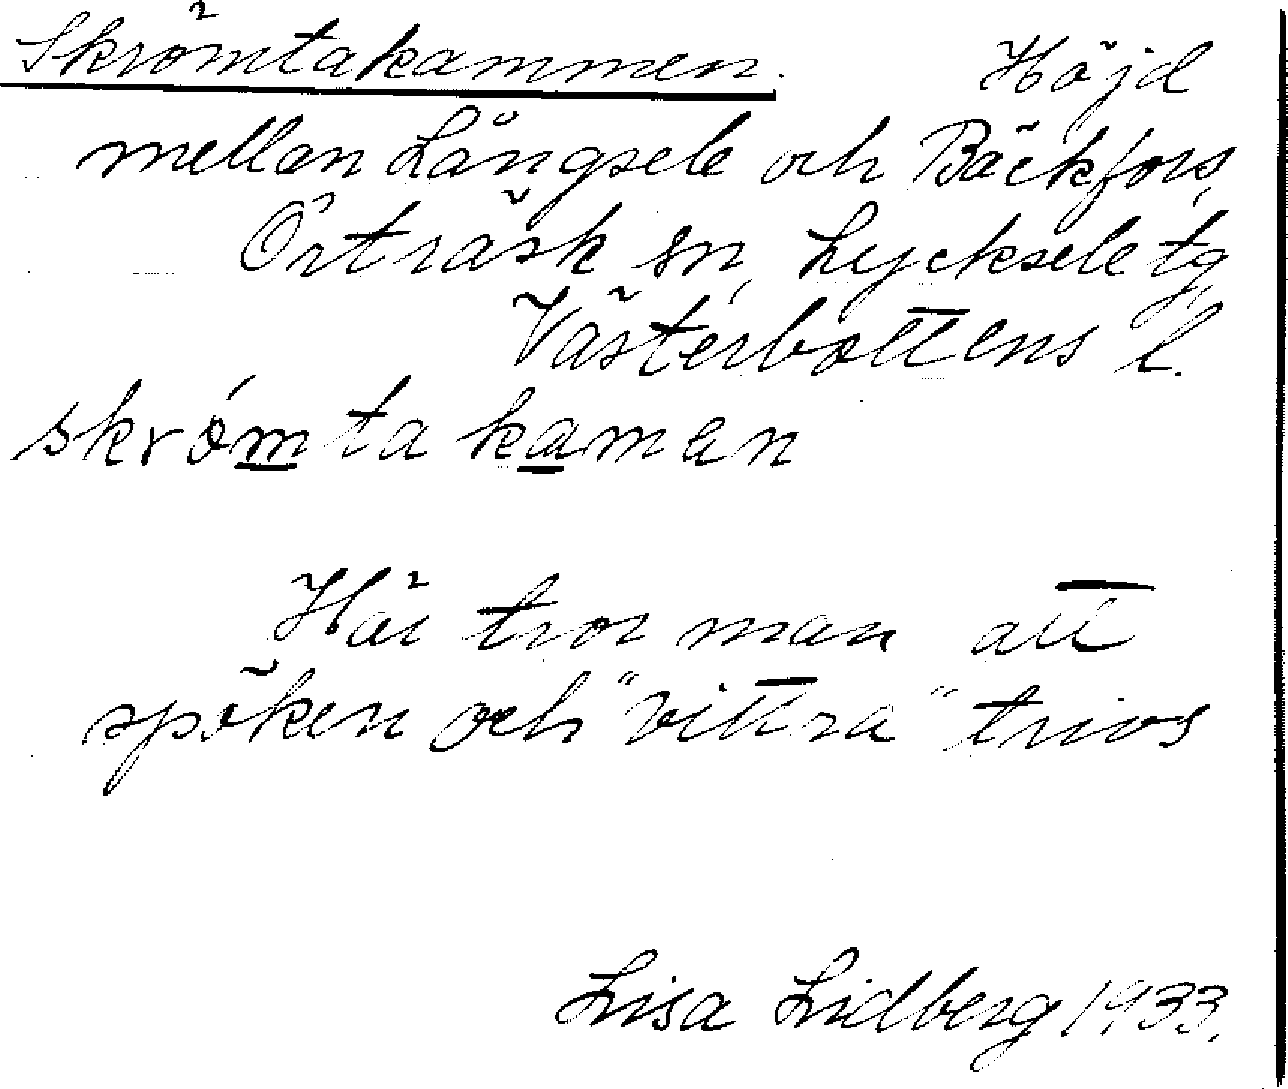 Skrömtakammen. Höjd
mellan Långsele och Bäckfors,
Örträsk sn, Lycksele tg,
Västerbottens l.
skrómta kaman
Här tror man att
spöken och "vittra" trivs
Lisa Lidberg 1933.